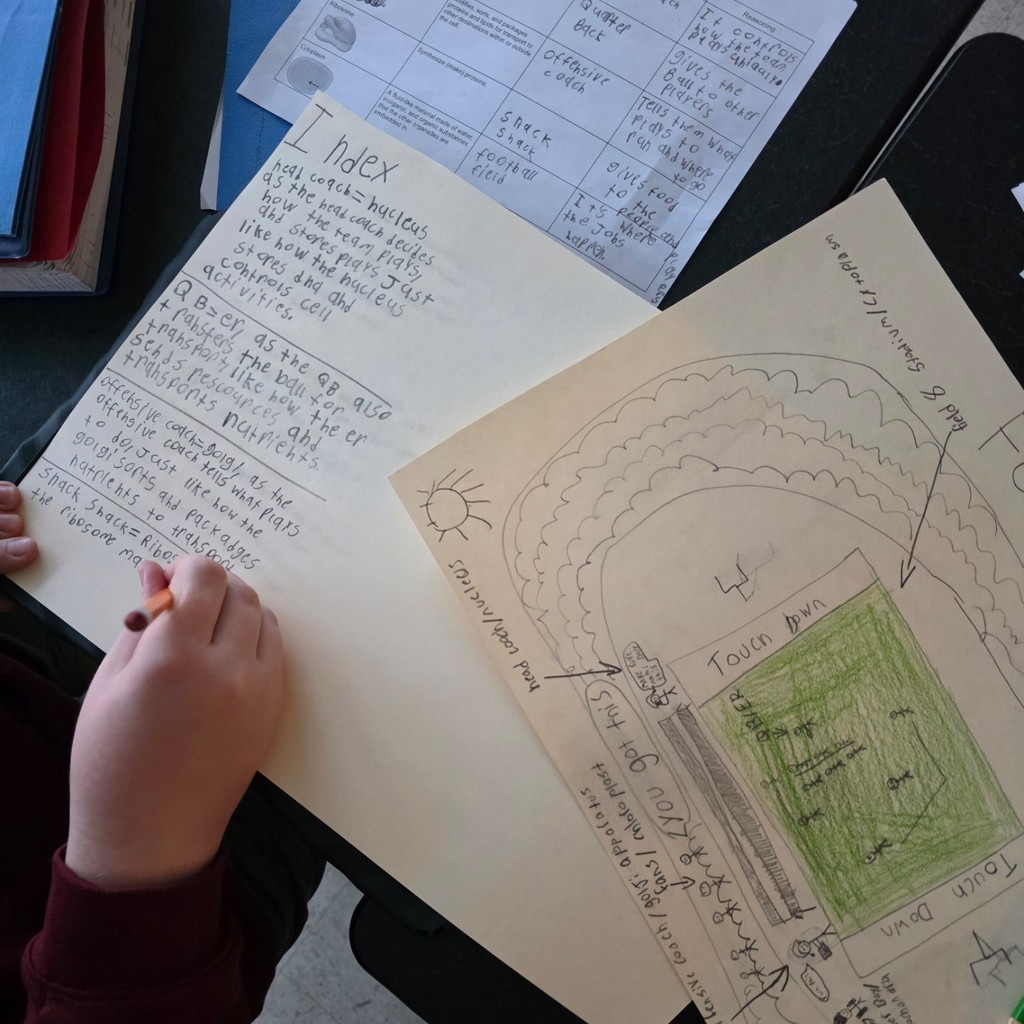 Reasoning
It controls
how the team
plays
Quarter
Back
gives the
Ball to other
Players
Ribosome
proteins and lipids for transport to
other destinations within or outside
the cell.
offensive
coach
Tells them what
plays to
run and where
to go
Cytoplasm
Synthesize (make) proteins.
snack
shack
gives food
to the
A fluid-like material made of water,
inorganic, and organic substances
that the other organelles are
embedded in.
football
field
where
the Jobs
happen.
Index
head coach= nucleus
as the head coach decides
how the team plays
and stores plays Just
like how the nucleus
stores dna and
controls cell
activities.
QB= er, as the QB also
transfers the ball for
transport, like how the er
sends rescources and
transports nutrients.
offensive coach= golgi, as the
offensive coach tells what plays
to do, Just like how the
golgi sorts and packadges
nutrients to transport
Snack Shack= Ribos
the ribosome ma
field & Stadium/cytoplasm
head coach/nucleus
Touch Down
You got this
coach/golgi apparatus
fans/
Touch
Down